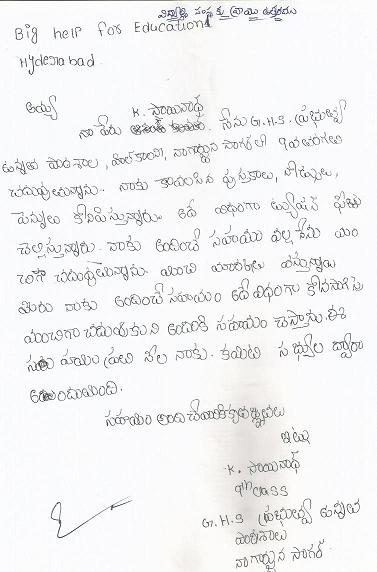 విద్యార్థి సంస్థ కు వ్రాయు ఉత్తరము
Big help for Education
Hyderabad.
అయ్యా
K. సాయినాథ్
నా పేరు నేను G.H.S ప్రభుత్వ
ఉన్నత పాఠశాల, హిల్ కాలని, నాగార్జున సాగర్ లో 9వ తరగతి
చదువుతున్నాను. నాకు కావలసిన పుస్తకాలు, నోట్సులు,
పెన్నులు కొనిపిస్తున్నారు. అదే విధంగా ట్యూషన్ ఫీజు
చెల్లిస్తున్నారు. నాకు అందించే సహాయం వల్ల నేను మం
చిగా చదువుతున్నాను. మంచి మార్కులు వస్తున్నాయి
మీరు నాకు అందించే సహాయం ఇదేవిధంగా కొనసాగిస్తే
మంచిగా చదువుకుని ఇతరులకి సహాయం చేస్తాను. ఈ
సహాయం ప్రతి నెల నాకు. కమిటి సభ్యుల ద్వారా
అందుతుంది.
సహాయం అందచేసినందుకు కృతజ్ఞతలు
ఇట్లు
K. సాయినాథ్
9th class
G.H.S ప్రభుత్వ ఉన్నత
పాఠశాల
నాగార్జున సాగర్